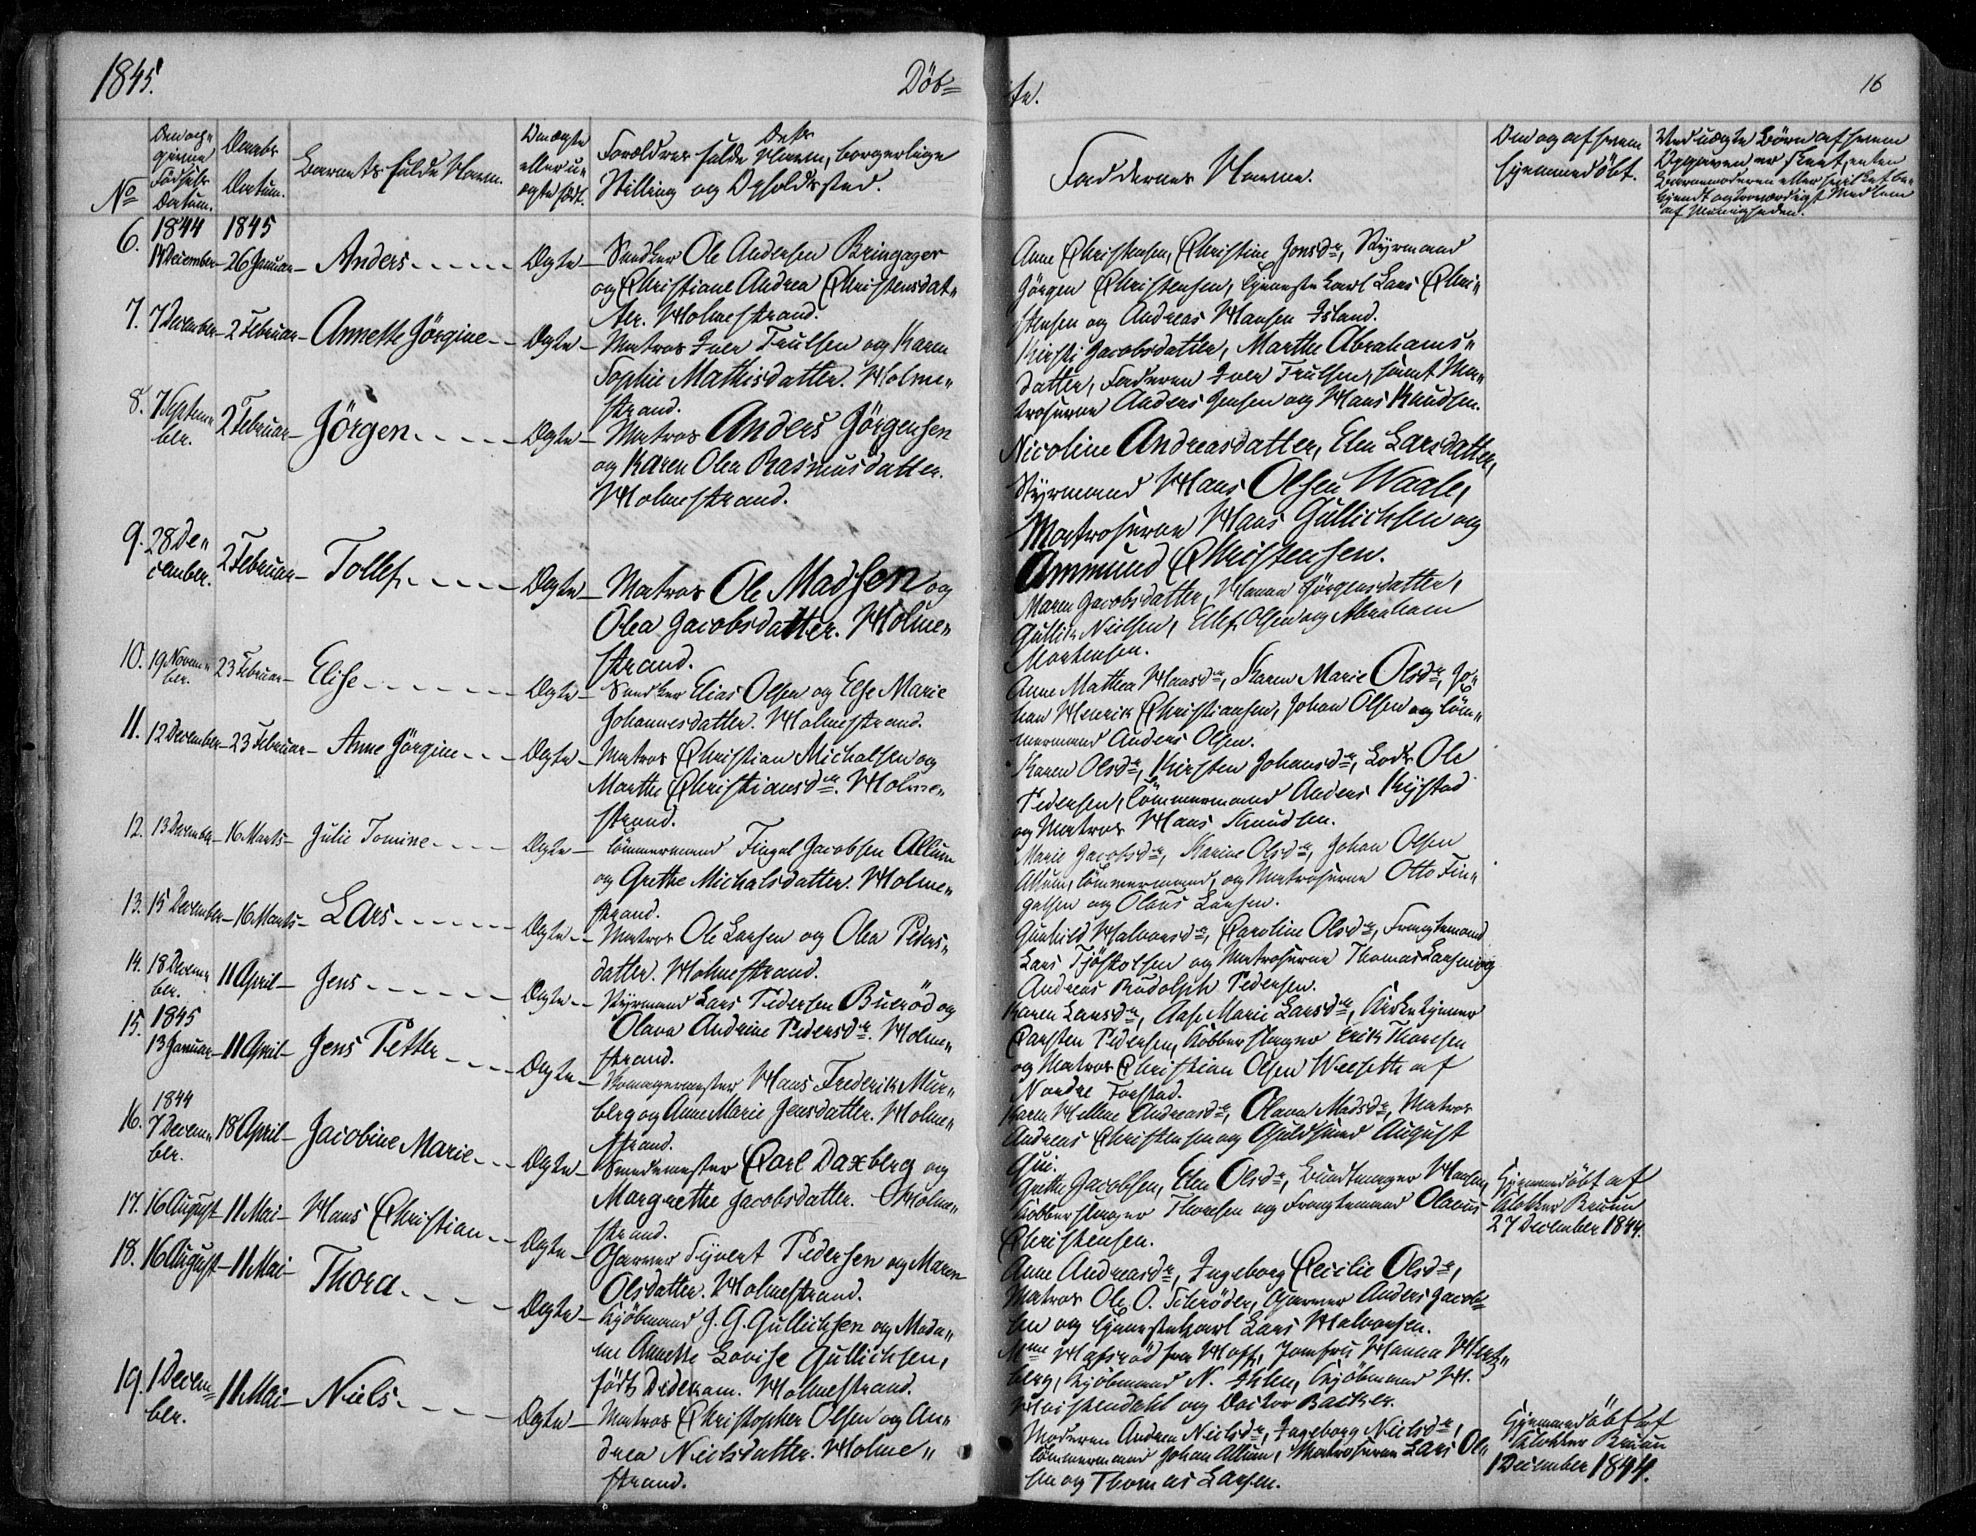 1845.
Döb=
te.
16
No
Den opgivne Födsels Datum.
Daabs Datum.
Barnets fulde Navn.
Om ægte eller uægte født.
Forældres fulde Navn, borgerlige
Stilling og Opholdssted.
Faddernes Navne.
Om og af hvem
hjemmedöbt.
Ved uægte Börn af hvem
Opgaven er skeet, enten
Barnemoderen eller hvilket be-
kjendt og troværdigt Medlem
af Menigheden.
6. 1844 1845
14 December 26 Januar Anders Ægte Snedker Ole Andersen Bringager
og Christiane Andrea Christensdat„
ter. Holmestrand.
Anne Christensen, Christine Jonsd=r, Styrmand
Jörgen Christensen, Tjenestekarl Lars Chri„
stensen og Andreas Hansen Island.
7. 7 December 2 Februar Annette Jörgine Ægte Matros Iver Trulsen og Karen
Sophie Mathisdatter. Holme„
strand.
Kirsti Jacobsdatter, Marthe Abrahams„
datter, Faderen Iver Trulsen, samt Ma„
troserne Anders Jensen og Hans Knudsen.
8. 7 Septem„
ber. 2 Februar Jörgen Ægte Matros Anders Jörgensen
og Karen Olea Rasmusdatter.
Holmestrand.
Nicoline Andreasdatter, Elen Larsdatter,
Styrmand Hans Olsen Waale,
Matroserne Hans Gullichsen og
Ammund Christensen.
9. 28 De„
cember. 2 Februar Tollef Ægte Matros Ole Madsen og
Olea Jacobsdatter. Holme„
strand.
Maren Jacobsdatter, Hanna Jörgensdatter,
Gullik Nielsen, Ellef Olsen og Abraham
Mortensen.
10. 19 Novem„
ber. 23 Februar Elise Ægte Snedker Elias Olsen og Else Marie
Johannesdatter. Holmestrand.
Anne Mathea Hansd=r, Karen Marie Olsd=r, Jo„
han Henrik Christiansen, Johan Olsen og Töm„
mermand Anders Olsen.
11. 12 December 23 Februar Anne Jörgine Ægte Matros Christian Michalsen og
Marthe Christiansd=r. Holme„
strand.
Karen Olsd=r, Kirsten Johansd=r, Lods Ole
Pedersen, Tömmermand Anders Kystad
og Matros Hans Knudsen.
12. 13 December 16 Marts Julie Tomine Ægte Tömmermand Fingal Jacobsen Allum
og Grethe Michalsdatter. Holme„
strand.
Marie Jacobsd=r, Karine Olsd=r, Johan Olsen
Allum, Tömmermand, og Matroserne Otto Fin„
galsen og Olaus Larsen.
13. 15 December 16 Marts Lars Ægte Matros Ole Larsen og Olea Peders„
datter. Holmestrand.
Gunhild Halvorsd=r, Caroline Olsd=r, Fragtemand
Lars Tjöstolsen og Matroserne Thomas Larsen og
Andreas Rudolph Pedersen.
14. 18 Decem„
ber. 11 April Jens Ægte Styrmand Lars Pedersen Bueröd og
Olava Andrine Pedersd=r. Holme„
strand.
Karen Larsd=r, Aase Marie Larsd=r, Kirketjener
Carsten Pedersen, Kobberslager Erik Thoresen
og Matros Christian Olsen Weesette af
Nordre Forstad.
15. 1845
13 Januar 11 April Jens Petter Ægte Skomagermester Hans Frederik Mür„
berg og Anne Marie Jensdatter. Holme„
strand.
Karen Helene Andreasd=r, Olava Madsd=r, Matros
Andreas Christensen og Guldsmed August
Qui.
16. 1844
7 Decem„
ber. 18 April Jacobine Marie Ægte Smedemester Carl Daxberg og
Margrethe Jacobsdatter. Holme„
strand.
Grethe Jacobsen, Elen Olsd=r, Bundtmager Hansen,
Kobberslager Thoresen og Fragtemand Olaus
Christensen.
Hjemmedöbt af
Klokker Bruun
27 December 1844.
17. 16 August 11 Mai Hans Christian Ægte Garver Syvert Pedersen og Maren
Olsdatter. Holmestrand.
Anne Andreasd=r, Ingeborg Cecilie Olsd=r,
Matros Ole O. Schröder, Garver Anders Jacob„
sen og Tjenestekarl Lars Halvorsen.
18. 16 August 11 Mai Thora Ægte Kjöbmand J. G. Gullichsen og Mada„
me Annette Lovise Gullichsen,
födt Dedekam. Holmestrand.
Mme Hafsröd fra Hoff, Jomfru Hanna Hertz„
berg, Kjöbmand N. Ihlen, Kjöbmand H.
Hoistendahl og Doctor Backer.
19. 1 Decem„
ber. 11 Mai Niels Ægte Matros Christopher Olsen og An„
drea Nielsdatter. Holme„
strand.
Moderen Andrea Nielsd=r, Ingeborg Nielsd=r,
Tömmermand Johan Allum, Matroserne Lars Ol„
sen og Thomas Larsen.
Hjemmedöbt af
Klokker Bruun
1 December 1844.